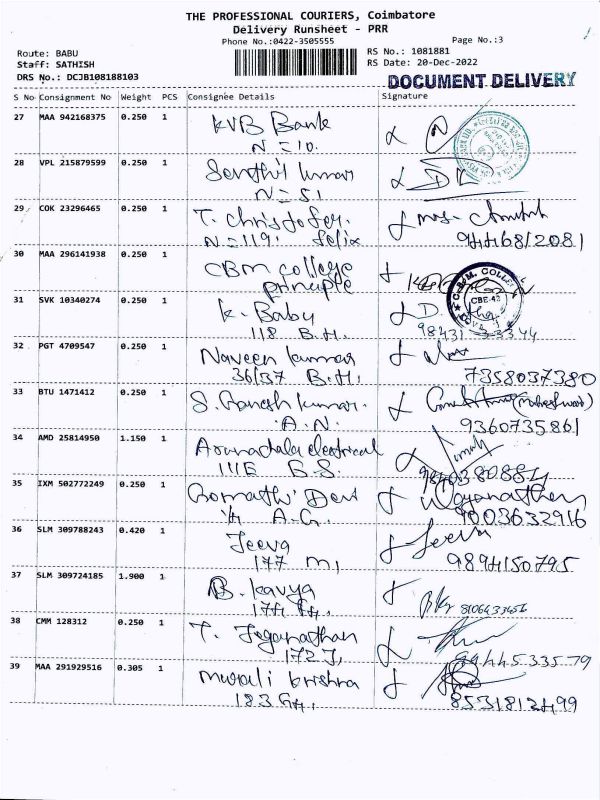 THE PROFESSIONAL COURIERS, Coimbatore
Delivery Runsheet - PRR
Phone No.:0422-3505555
Page No.:3
Route: BABU
RS No.: 1081881
Staff: SATHISH
RS Date: 20-Dec-2022
DRS No.: DCJB108188103
DOCUMENT DELIVERY
S No Consignment No Weight PCS Consignee Details Signature
27 MAA 942168375 0.250 1 KVB Bank
N = 10.
28 VPL 215879599 0.250 1 Senthil kumar
N = 51
29 COK 23296465 0.250 1 T. Christofer. mrs.
N = 119. felix 9446812081
30 MAA 296141938 0.250 1 CBM college
principle
C.B.M. COLLE
CBE-42
31 SVK 10340274 0.250 1 K. Baby D.
118 B.H. 98431 33344
32 PGT 4709547 0.250 1 Naveen kumar
36/37 B.H. 7358037380
33 BTU 1471412 0.250 1 S. Ganesh kumar.
A.N. 9360735861
34 AMD 25814950 1.150 1 Arunachala electrical
111E G.S. 9840380884
35 IXM 502772249 0.250 1 Gomathi Devi
1/4 A.G. 9003632916
36 SLM 309788243 0.420 1 Jeeva Jeeva
177 M, 9894150795
37 SLM 309724185 1.900 1 B. Kavya
174 8106433456
38 CMM 128312 0.250 1 T. Jeganathan
172 J, 9444533579
39 MAA 291929516 0.305 1 Murali krishna
183 8531812499